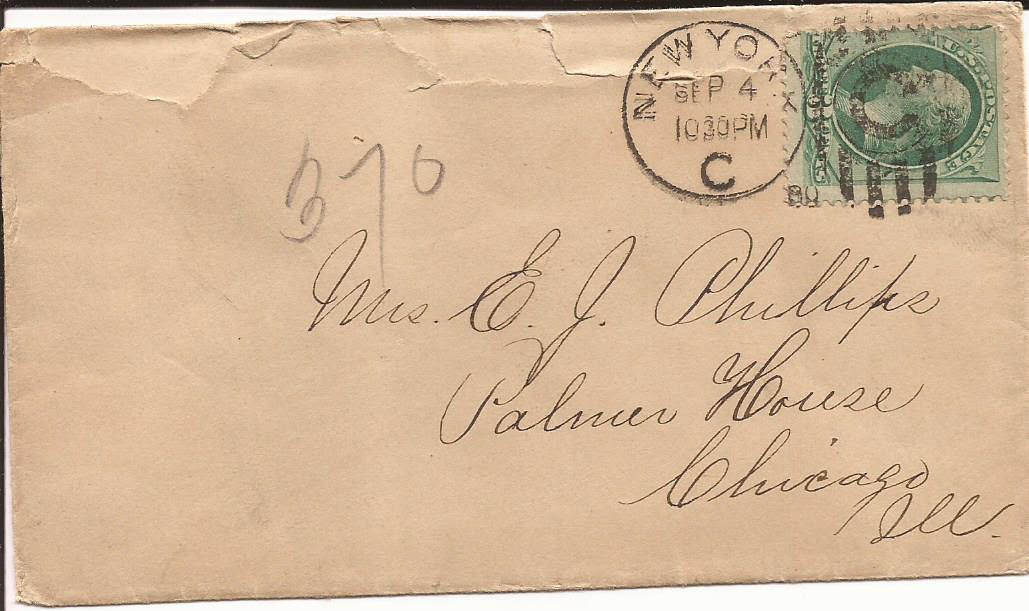 NEW YORK
SEP 4
1030PM
C
80
U.S. POSTAGE
370
Mrs. E. J. Phillips
Palmer House
Chicago
Ill.